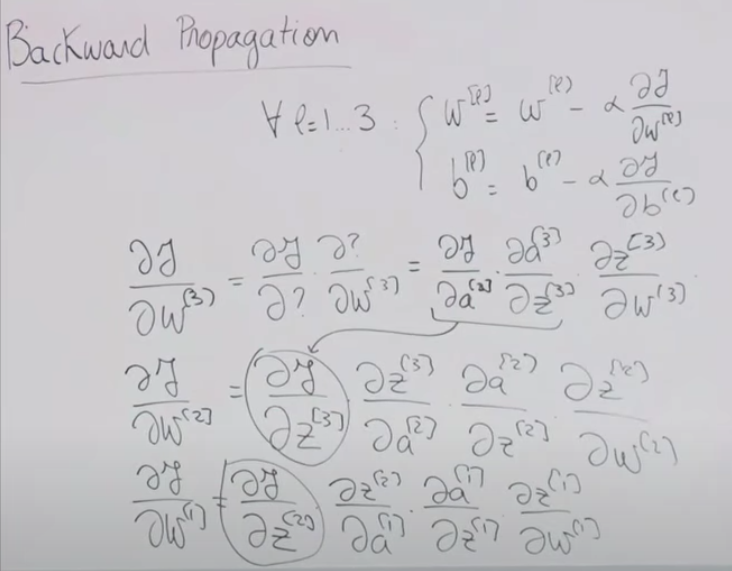 Backward Propagation
∀ l=1...3 : { w^[l] = w^(l) - α ∂J/∂w^[l]
b^[l] = b^(l) - α ∂J/∂b^(l)
∂J/∂w^(3) = ∂J/∂? · ∂?/∂w^(3) = ∂J/∂a^[3] · ∂a^[3]/∂z^[3] · ∂z^[3]/∂w^(3)
∂J/∂w^[2] = ∂J/∂z^[3] · ∂z^(3)/∂a^[2] · ∂a^[2]/∂z^[2] · ∂z^[2]/∂w^(2)
∂J/∂w^(1) = ∂J/∂z^[2] · ∂z^(2)/∂a^(1) · ∂a^(1)/∂z^(1) · ∂z^(1)/∂w^(1)